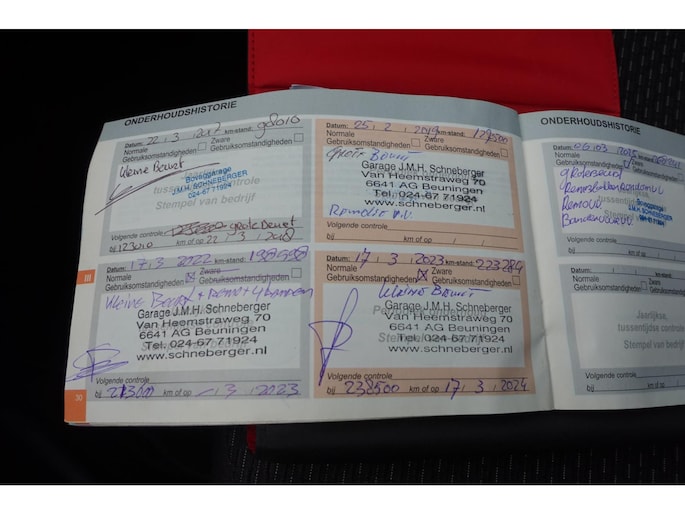 ONDERHOUDSHISTORIE
Datum: 22 / 3 / 2017 km-stand: 98010
Normale Zware
Gebruiksomstandigheden Gebruiksomstandigheden
kleine Beurt
Jaarlijkse,
tussentijdse controle
Stempel van bedrijf
Bovaggarage
J.M.H. SCHNEBERGER
024-6771924
Volgende controle grote Beurt
bij 123010 km of op 22 / 3 / 2018
Datum: 25 / 2 / 2019 km-stand:
Normale Zware
Gebruiksomstandigheden Gebruiksomstandigheden
Grote Beurt
Garage J.M.H. Schneberger
Van Heemstraweg 70
6641 AG Beuningen
Tel. 024-67 71924
www.schneberger.nl
Remolie v.v.
Volgende controle
bij km of op / /
Datum: 17 / 3 / 2022 km-stand: 198598
Normale Zware
Gebruiksomstandigheden Gebruiksomstandigheden
Kleine Beurt +
Garage J.M.H. Schneberger
Van Heemstraweg 70
6641 AG Beuningen
Tel. 024-67 71924
www.schneberger.nl
Volgende controle
bij 213000 km of op / 3 / 2023
Datum: 17 / 3 / 2023 km-stand: 223284
Normale Zware
Gebruiksomstandigheden Gebruiksomstandigheden
Kleine Beurt
Garage J.M.H. Schneberger
Van Heemstraweg 70
6641 AG Beuningen
Tel. 024-67 71924
www.schneberger.nl
Volgende controle
bij 238500 km of op 17 / 3 / 2024
III
30
ONDERHOUDSHISTORIE
Datum: 06 / 03 / 2025 km-stand:
Normale Zware
Gebruiksomstandigheden
Volgende controle
bij km of op / /
Datum: / / km-stand:
Normale Zware
Gebruiksomstandigheden
Jaarlijkse,
tussentijdse controle
Stempel van bedrijf
Volgende controle
bij km of op / /